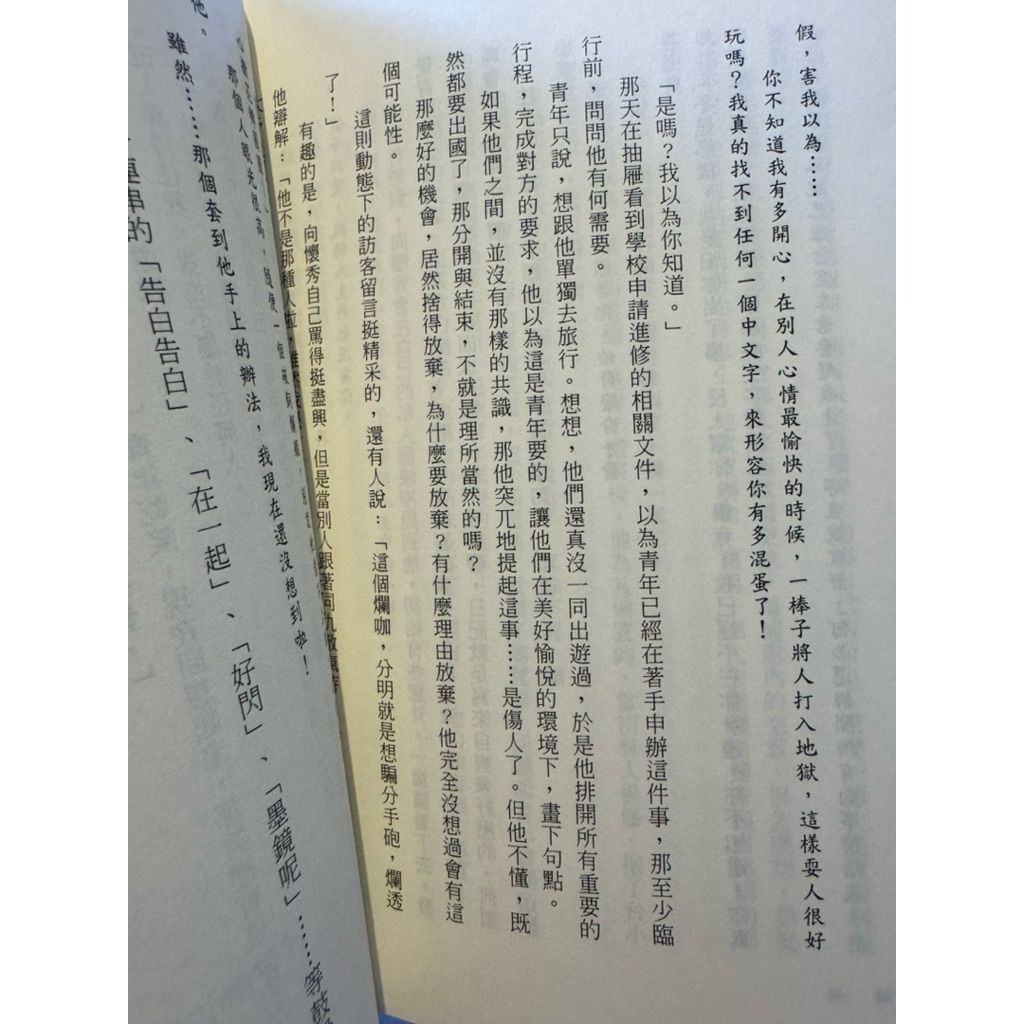 假，害我以為……
你不知道我有多開心，在別人心情最愉快的時候，一棒子將人打入地獄，這樣耍人很好
玩嗎？我真的找不到任何一個中文字，來形容你有多混蛋了！
「是嗎？我以為你知道。」
那天在抽屜看到學校申請進修的相關文件，以為青年已經在著手申辦這件事，那至少臨
行前，問問他有何需要。
青年只說，想跟他單獨去旅行。想想，他們還真沒一同出遊過，於是他排開所有重要的
行程，完成對方的要求，他以為這是青年要的，讓他們在美好愉悅的環境下，畫下句點。
如果他們之間，並沒有那樣的共識，那他突兀地提起這事……是傷人了。但他不懂，既
然都要出國了，那分開與結束，不就是理所當然的嗎？
那麼好的機會，居然捨得放棄，為什麼要放棄？有什麼理由放棄？他完全沒想過會有這
個可能性。
這則動態下的訪客留言挺精采的，還有人說：「這個爛咖，分明就是想騙分手砲，爛透
了！」
有趣的是，向懷秀自己罵得挺盡興，但是當別人跟著同仇敵愾時
他辯解：「他不是那種人啦，
那個人眼光很高，隨便一個
他。
雖然……那個套到他手上的辦法，我現在還沒想到啦！
一連串的「告白告白」、「在一起」、「好閃」、「墨鏡呢」……等鼓